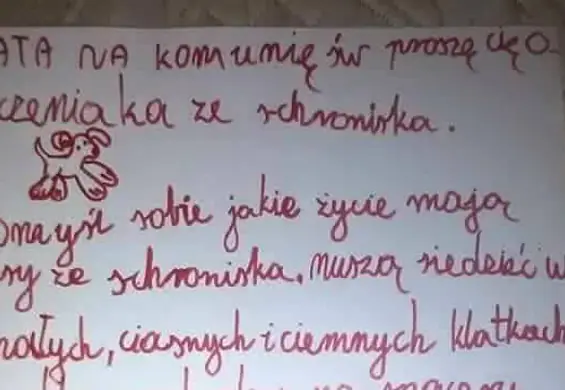 ATA NA KOMUNIĘ św proszę cię o
czeniaka ze schroniska.
omayśl sobie jakie życie mają
sy ze schroniska. Muszą siedzieć w
małych, ciasnych i ciemnych klatkach